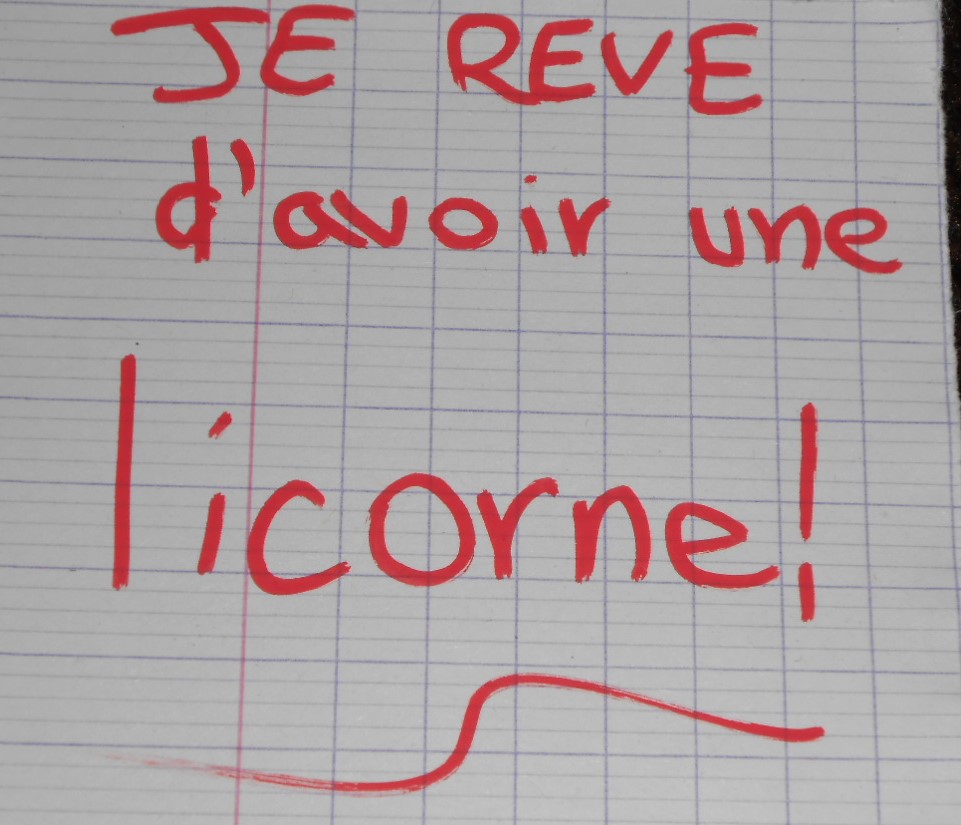 JE REVE
d'avoir une
licorne!